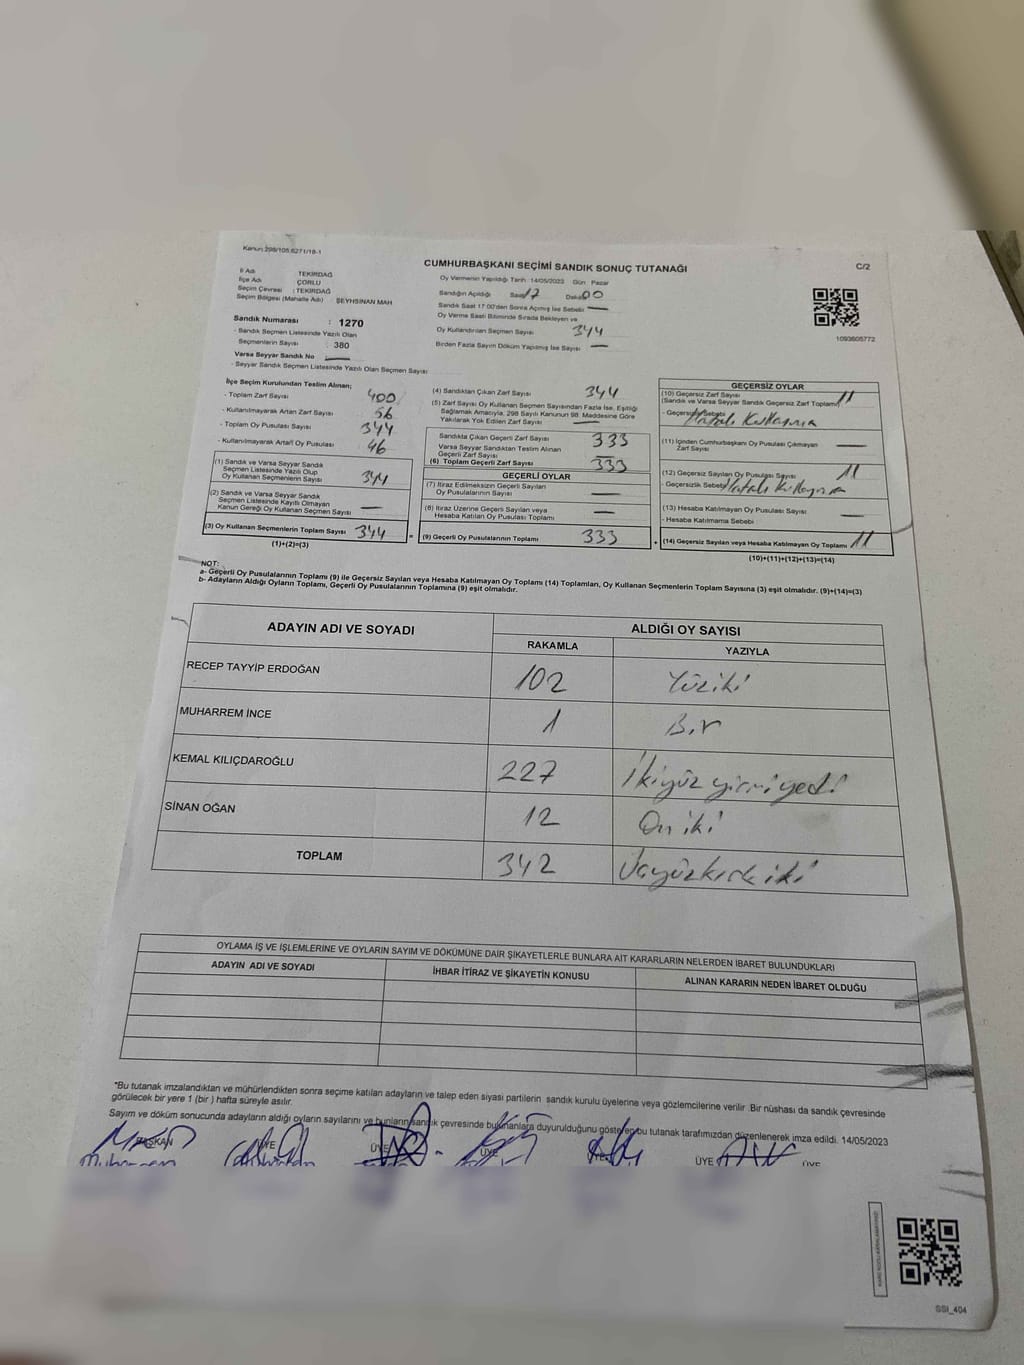 Kanun: 298/105,6271/18-1
CUMHURBAŞKANI SEÇİMİ SANDIK SONUÇ TUTANAĞI
C/2
İl Adı TEKİRDAĞ
İlçe Adı ÇORLU
Seçim Çevresi : TEKİRDAĞ
Seçim Bölgesi (Mahalle Adı) : ŞEYHSİNAN MAH
Sandık Numarası : 1270
- Sandık Seçmen Listesinde Yazılı Olan
Seçmenlerin Sayısı : 380
Varsa Seyyar Sandık No —
- Seyyar Sandık Seçmen Listesinde Yazılı Olan Seçmen Sayısı
Oy Vermenin Yapıldığı Tarih : 14/05/2023 Gün Pazar
Sandığın Açıldığı Saat 17 Dakika 00
Sandık Saat 17:00'den Sonra Açılmış İse Sebebi —
Oy Verme Saati Bitiminde Sırada Bekleyen ve
Oy Kullandırılan Seçmen Sayısı 344
Birden Fazla Sayım Döküm Yapılmış İse Sayısı —
1093605772
İlçe Seçim Kurulundan Teslim Alınan;
- Toplam Zarf Sayısı 400
- Kullanılmayarak Artan Zarf Sayısı 56
- Toplam Oy Pusulası Sayısı 344
- Kullanılmayarak Artan Oy Pusulası 46
(1) Sandık ve Varsa Seyyar Sandık
Seçmen Listesinde Yazılı Olup
Oy Kullanan Seçmenlerin Sayısı 344
(2) Sandık ve Varsa Seyyar Sandık
Seçmen Listesinde Kayıtlı Olmayan
Kanun Gereği Oy Kullanan Seçmen Sayısı —
(3) Oy Kullanan Seçmenlerin Toplam Sayısı 344
(1)+(2)=(3)
(4) Sandıktan Çıkan Zarf Sayısı 344
(5) Zarf Sayısı Oy Kullanan Seçmen Sayısından Fazla İse, Eşitliği
Sağlamak Amacıyla, 298 Sayılı Kanunun 98. Maddesine Göre
Yakılarak Yok Edilen Zarf Sayısı —
Sandıkta Çıkan Geçerli Zarf Sayısı 333
Varsa Seyyar Sandıktan Teslim Alınan
Geçerli Zarf Sayısı —
(6) Toplam Geçerli Zarf Sayısı 333
GEÇERLİ OYLAR
(7) İtiraz Edilmeksizin Geçerli Sayılan
Oy Pusulalarının Sayısı —
(8) İtiraz Üzerine Geçerli Sayılan veya
Hesaba Katılan Oy Pusulası Toplamı —
(9) Geçerli Oy Pusulalarının Toplamı 333
GEÇERSİZ OYLAR
(10) Geçersiz Zarf Sayısı
(Sandık ve Varsa Seyyar Sandık Geçersiz Zarf Toplamı) 11
- Geçersizlik Sebebi Hatalı Kullanma
(11) İçinden Cumhurbaşkanı Oy Pusulası Çıkmayan
Zarf Sayısı —
(12) Geçersiz Sayılan Oy Pusulası Sayısı 11
- Geçersizlik Sebebi Hatalı Kullanma
(13) Hesaba Katılmayan Oy Pusulası Sayısı —
- Hesaba Katılmama Sebebi
(14) Geçersiz Sayılan veya Hesaba Katılmayan Oy Toplamı 11
(10)+(11)+(12)+(13)=(14)
NOT:
a- Geçerli Oy Pusulalarının Toplamı (9) ile Geçersiz Sayılan veya Hesaba Katılmayan Oy Toplamı (14) Toplamları, Oy Kullanan Seçmenlerin Toplam Sayısına (3) eşit olmalıdır. (9)+(14)=(3)
b- Adayların Aldığı Oyların Toplamı, Geçerli Oy Pusulalarının Toplamına (9) eşit olmalıdır.
ADAYIN ADI VE SOYADI
ALDIĞI OY SAYISI
RAKAMLA YAZIYLA
RECEP TAYYİP ERDOĞAN 102 Yüziki
MUHARREM İNCE 1 Bir
KEMAL KILIÇDAROĞLU 227 İkiyüz yirmiyedi
SİNAN OĞAN 12 On iki
TOPLAM 342 Üçyüzkırkiki
OYLAMA İŞ VE İŞLEMLERİNE VE OYLARIN SAYIM VE DÖKÜMÜNE DAİR ŞİKAYETLERLE BUNLARA AİT KARARLARIN NELERDEN İBARET BULUNDUKLARI
ADAYIN ADI VE SOYADI İHBAR İTİRAZ VE ŞİKAYETİN KONUSU ALINAN KARARIN NEDEN İBARET OLDUĞU
*Bu tutanak imzalandıktan ve mühürlendikten sonra seçime katılan adayların ve talep eden siyasi partilerin sandık kurulu üyelerine veya gözlemcilerine verilir .Bir nüshası da sandık çevresinde
görülecek bir yere 1 (bir ) hafta süreyle asılır.
Sayım ve döküm sonucunda adayların aldığı oyların sayılarını ve bunların sandık çevresinde bulunanlara duyurulduğunu gösteren bu tutanak tarafımızdan düzenlenerek imza edildi. 14/05/2023
BAŞKAN ÜYE ÜYE ÜYE ÜYE ÜYE ÜYE
SSI_404